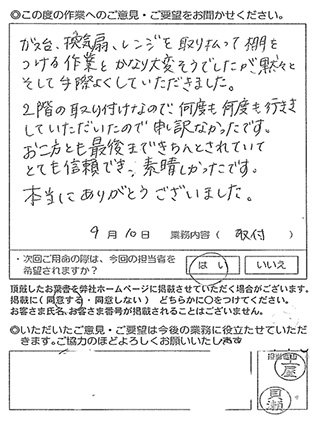 ◎この度の作業へのご意見・ご要望をお聞かせください。
ガス台、換気扇、レンジを取り払って棚を
つける作業とかなり大変そうでしたが黙々と
そして手際よくしていただきました。
2階の取り付けなので何度も何度も行き来
していただいたので申し訳なかったです。
お二方とも最後まできちんとされていて
とても信頼でき、素晴しかったです。
本当にありがとうございました。
9月10日 業務内容(取付)
・次回ご用命の際は、今回の担当者を
希望されますか?
はい いいえ
頂戴したお葉書を弊社ホームページに掲載させていただく場合がございます。
掲載に(同意する・同意しない) どちらかに○をつけてください。
お客さま氏名、お客さま番号が掲載されることはございません。
◎いただいたご意見・ご要望は今後の業務に役立たせていただ
きます。ご協力のほどよろしくお願いいたします